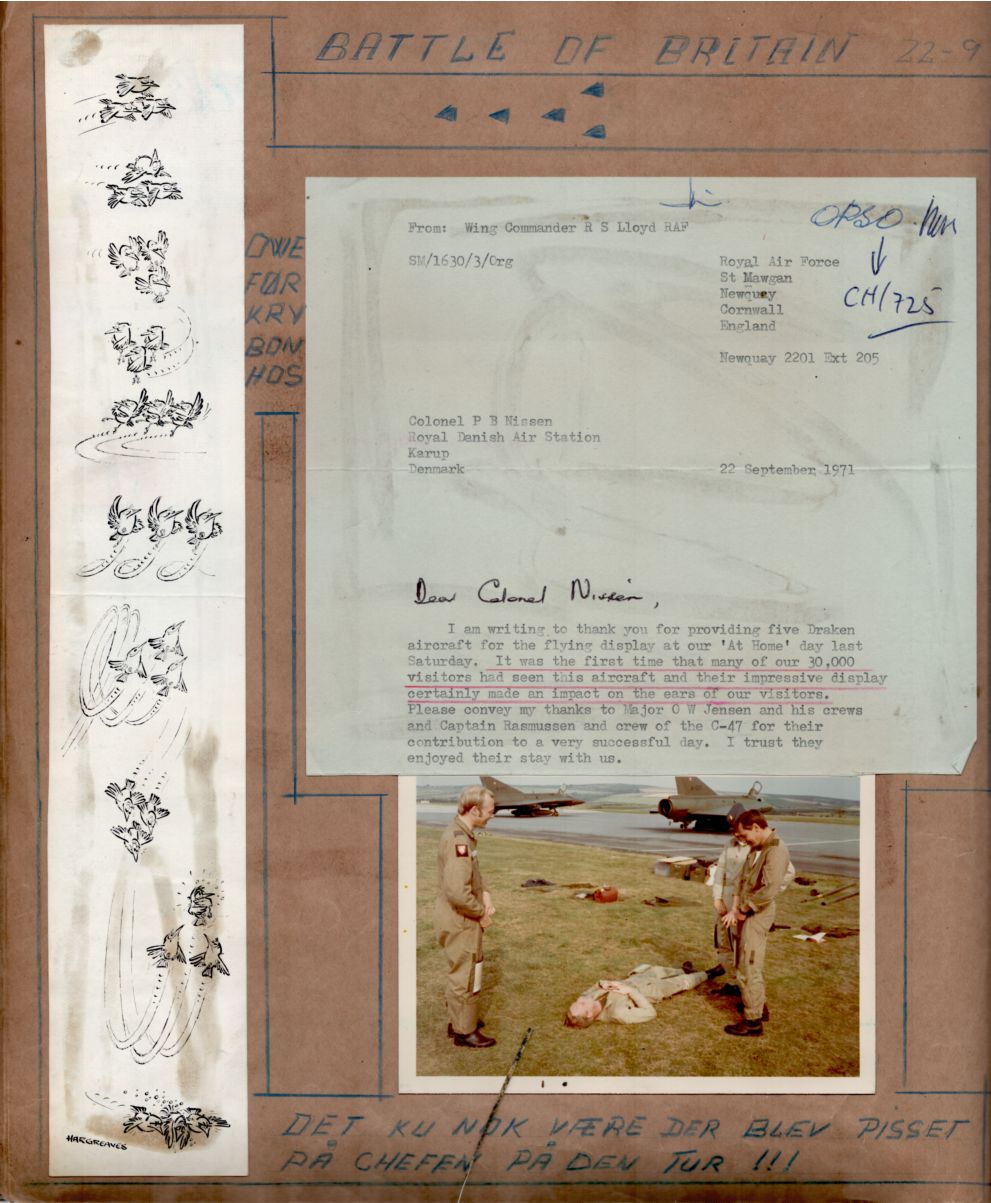 BATTLE OF BRITAIN 22-9
OWE
FØR
KRY
BON
HOS
OPSO
CH/725
From: Wing Commander R S Lloyd RAF
SM/1630/3/Org
Royal Air Force
St Mawgan
Newquay
Cornwall
England
Newquay 2201 Ext 205
Colonel P B Nissen
Royal Danish Air Station
Karup
Denmark
22 September 1971
Dear Colonel Nissen,
I am writing to thank you for providing five Draken
aircraft for the flying display at our 'At Home' day last
Saturday. It was the first time that many of our 30,000
visitors had seen this aircraft and their impressive display
certainly made an impact on the ears of our visitors.
Please convey my thanks to Major O W Jensen and his crews
and Captain Rasmussen and crew of the C-47 for their
contribution to a very successful day. I trust they
enjoyed their stay with us.
HARGREAVES
DET KU NOK VÆRE DER BLEV PISSET
PÅ CHEFEN PÅ DEN TUR !!!